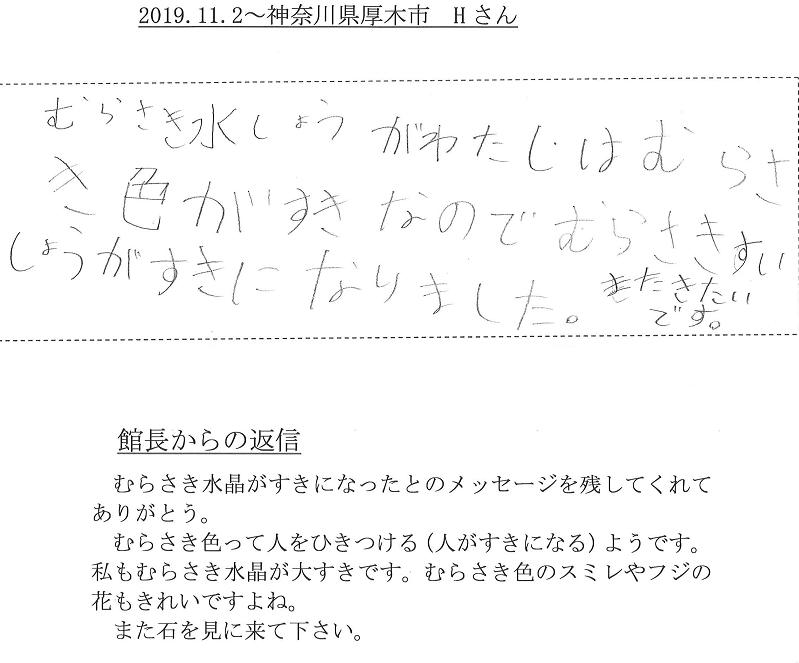 2019.11.2～神奈川県厚木市　Hさん
むらさき水しょうがわたしはむらさ
き色がすきなのでむらさきすい
しょうがすきになりました。またきたい
です。
館長からの返信
むらさき水晶がすきになったとのメッセージを残してくれて
ありがとう。
むらさき色って人をひきつける（人がすきになる）ようです。
私もむらさき水晶が大すきです。むらさき色のスミレやフジの
花もきれいですよね。
また石を見に来て下さい。